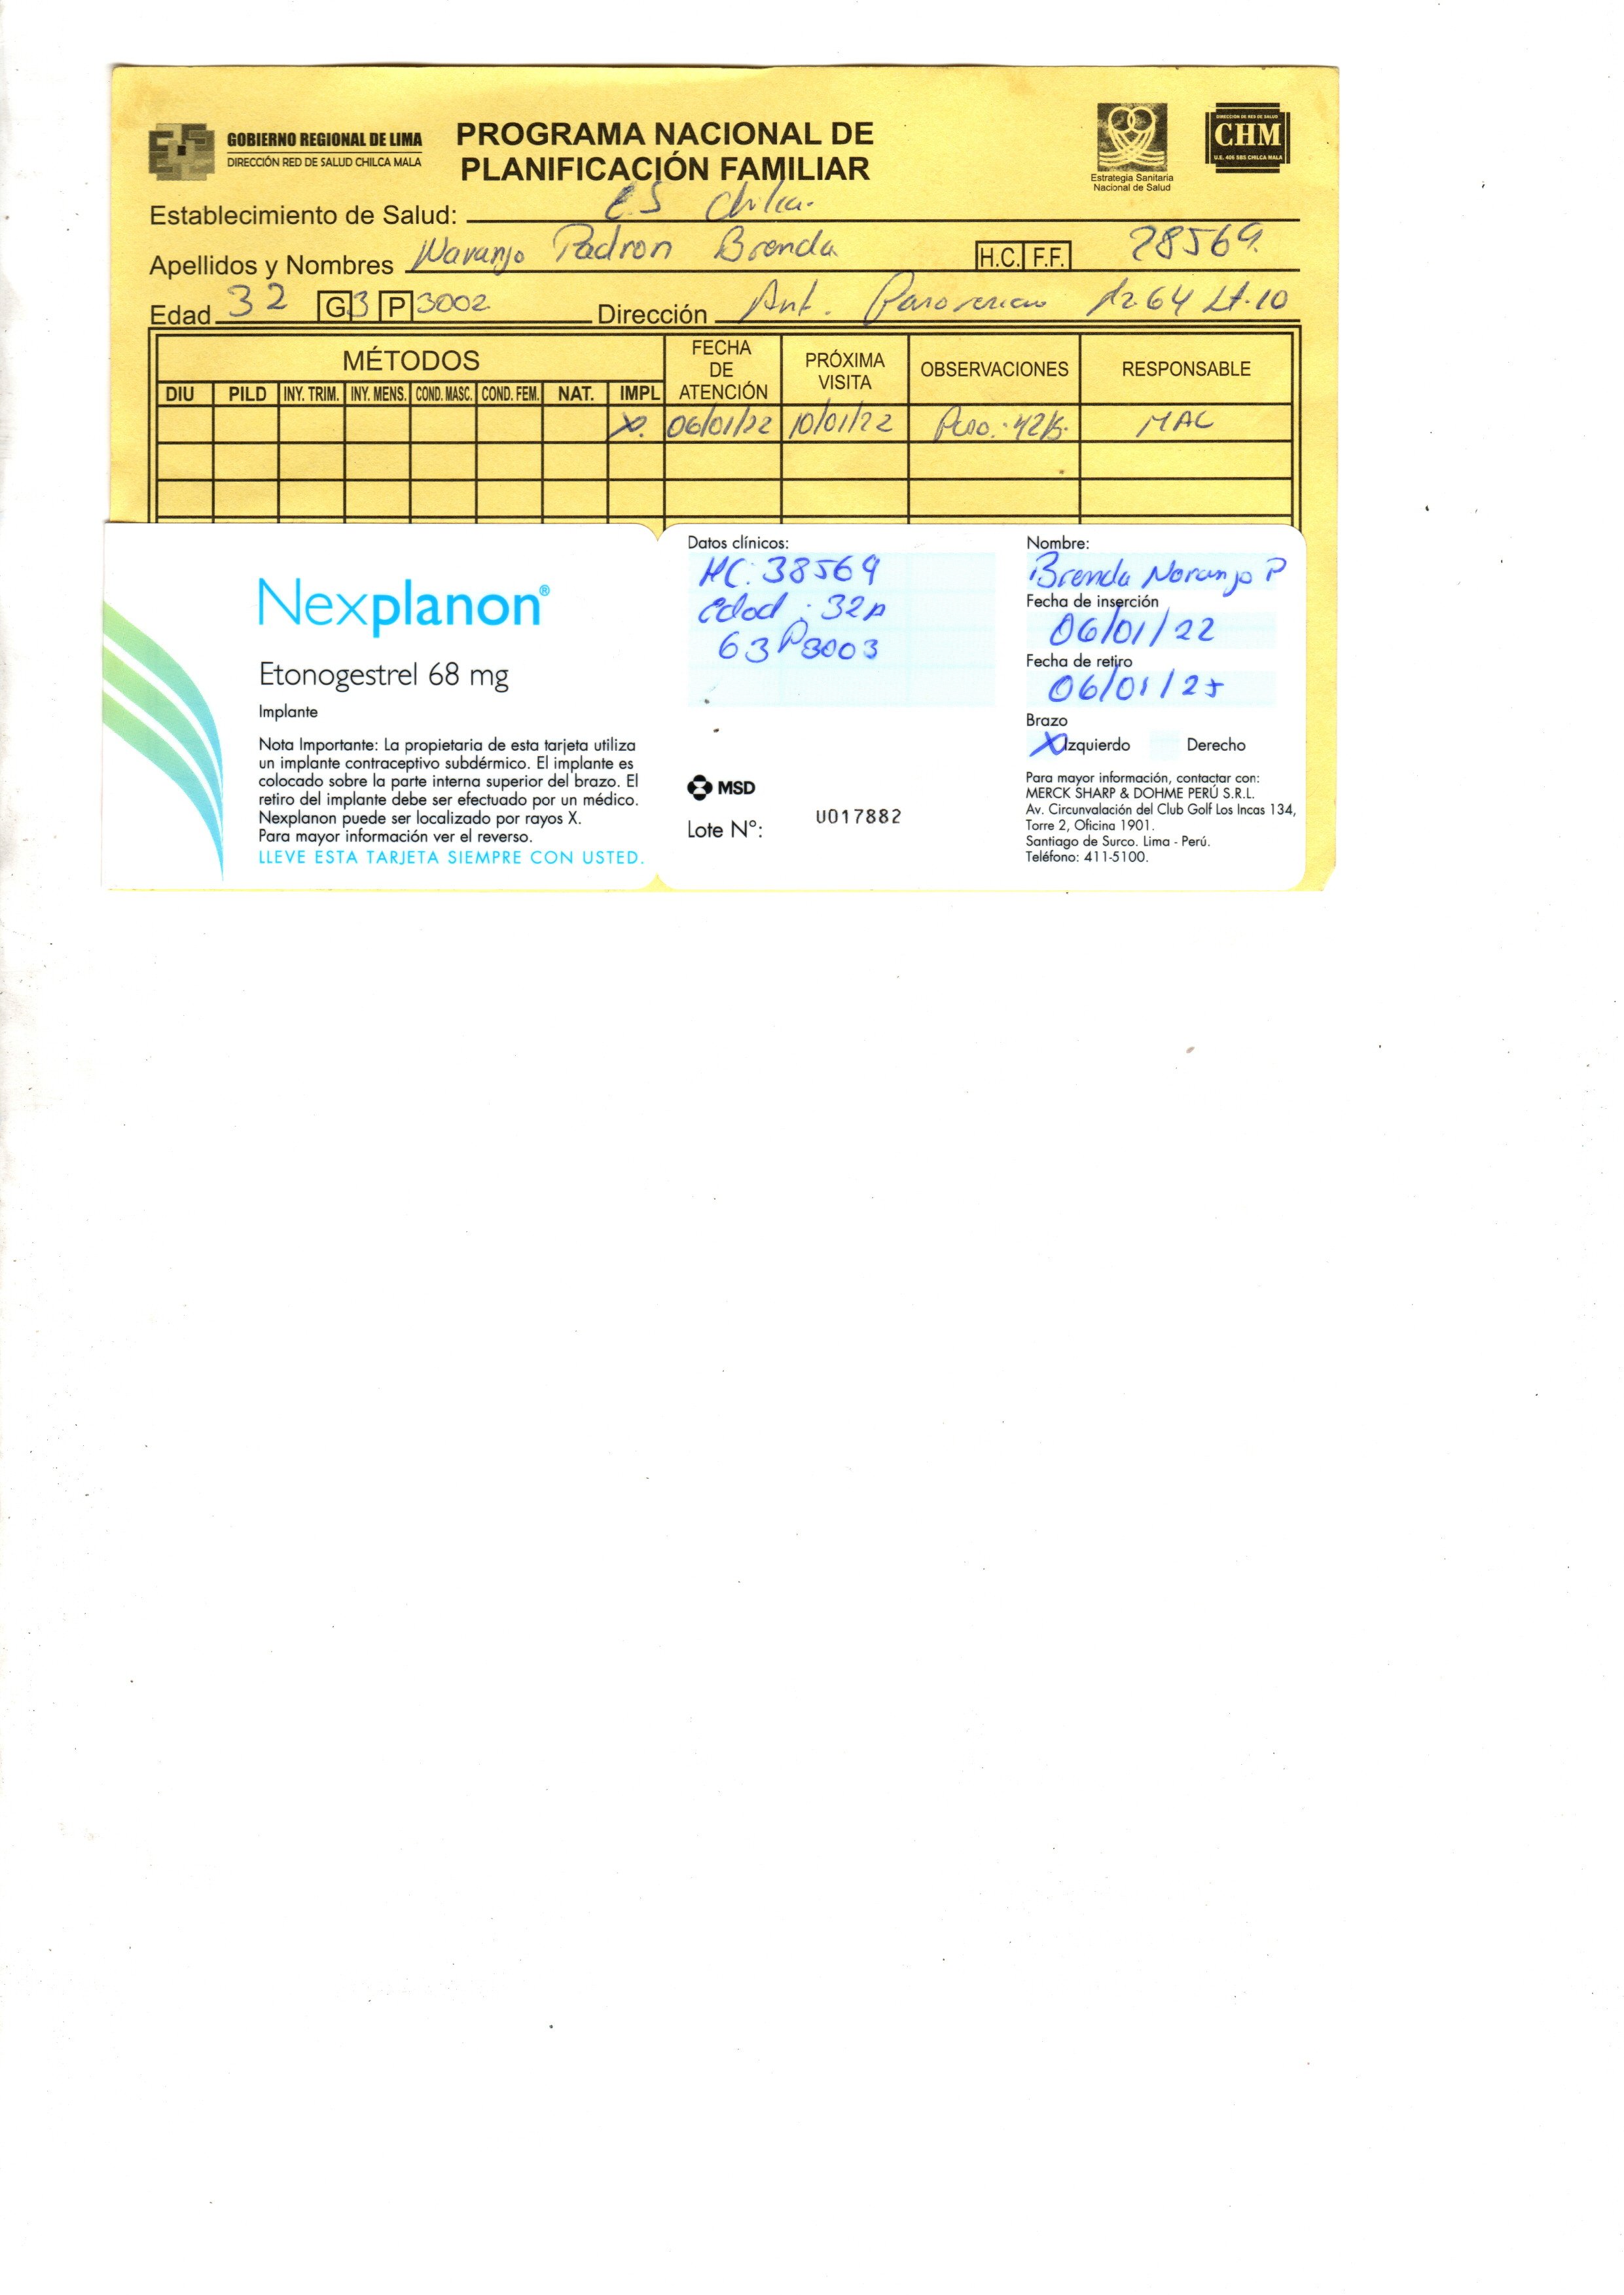 GOBIERNO REGIONAL DE LIMA
DIRECCIÓN RED DE SALUD CHILCA MALA
PROGRAMA NACIONAL DE
PLANIFICACIÓN FAMILIAR
Estrategia Sanitaria
Nacional de Salud
DIRECCIÓN DE RED DE SALUD
CHM
U.E. 406 SBS CHILCA MALA
Establecimiento de Salud: C.S Chilca.
Apellidos y Nombres Naranjo Padron Brenda H.C. F.F. 38569.
Edad 32 G 3 P 3002 Dirección Ant. 64 Lt. 10
MÉTODOS FECHA DE ATENCIÓN PRÓXIMA VISITA OBSERVACIONES RESPONSABLE
DIU PILD INY. TRIM. INY. MENS. COND. MASC. COND. FEM. NAT. IMPL
X. 06/01/22 10/01/22 MAC
Nexplanon®
Etonogestrel 68 mg
Implante
Nota Importante: La propietaria de esta tarjeta utiliza
un implante contraceptivo subdérmico. El implante es
colocado sobre la parte interna superior del brazo. El
retiro del implante debe ser efectuado por un médico.
Nexplanon puede ser localizado por rayos X.
Para mayor información ver el reverso.
LLEVE ESTA TARJETA SIEMPRE CON USTED.
Datos clínicos:
HC: 38569
Edad : 32a
G3 P3003
MSD
Lote N°: U017882
Nombre:
Brenda Naranjo P
Fecha de inserción
06/01/22
Fecha de retiro
06/01/25
Brazo
X Izquierdo Derecho
Para mayor información, contactar con:
MERCK SHARP & DOHME PERÚ S.R.L.
Av. Circunvalación del Club Golf Los Incas 134,
Torre 2, Oficina 1901.
Santiago de Surco. Lima - Perú.
Teléfono: 411-5100.